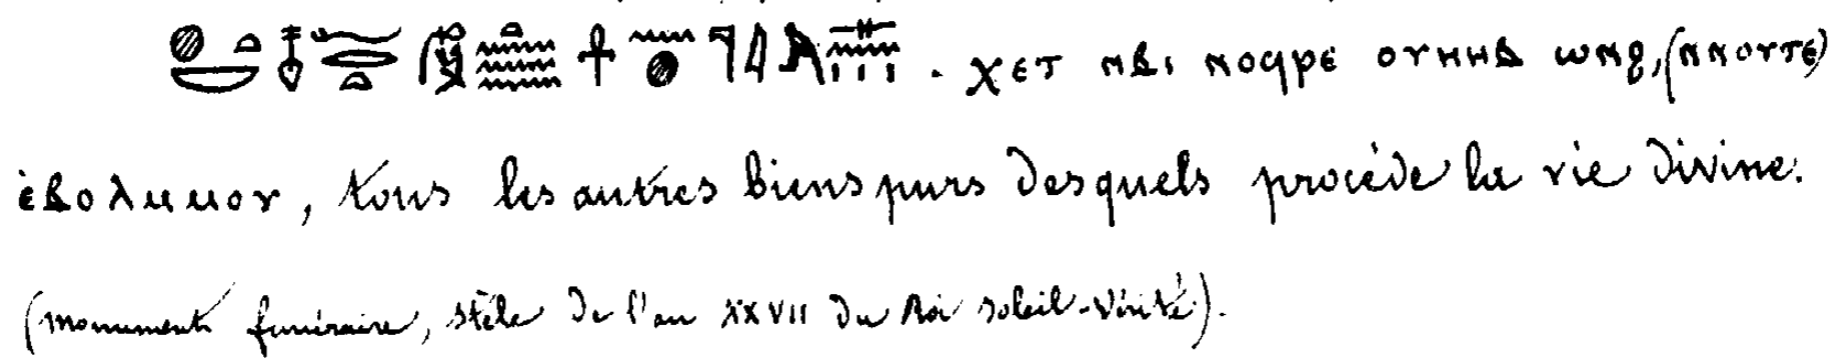 𓐍𓏏𓎟𓄤𓆑𓂋𓏏𓈗𓋹𓈖𓐍𓊹𓇋𓅓𓊃𓈖𓏥 . ⲭⲉⲧ ⲛⲃⲓ ⲛⲟϥⲣⲉ ⲟⲩⲏⲏⲃ ⲱⲛϩ, (ⲛⲛⲟⲩⲧⲉ)
ⲉ̀ⲃⲟⲗⲙⲙⲟⲩ, tous les autres biens purs desquels procède la vie divine.
(monument funéraire, stèle de l'an XXVII du Roi soleil-vérité).